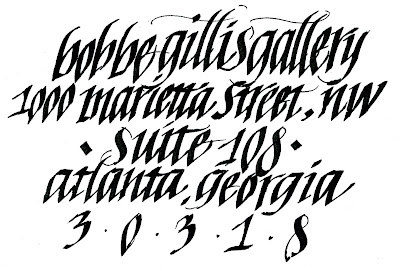 bobbe gillis gallery
1000 marietta street, nw
· suite 108 ·
atlanta, georgia
3 · 0 · 3 · 1 · 8